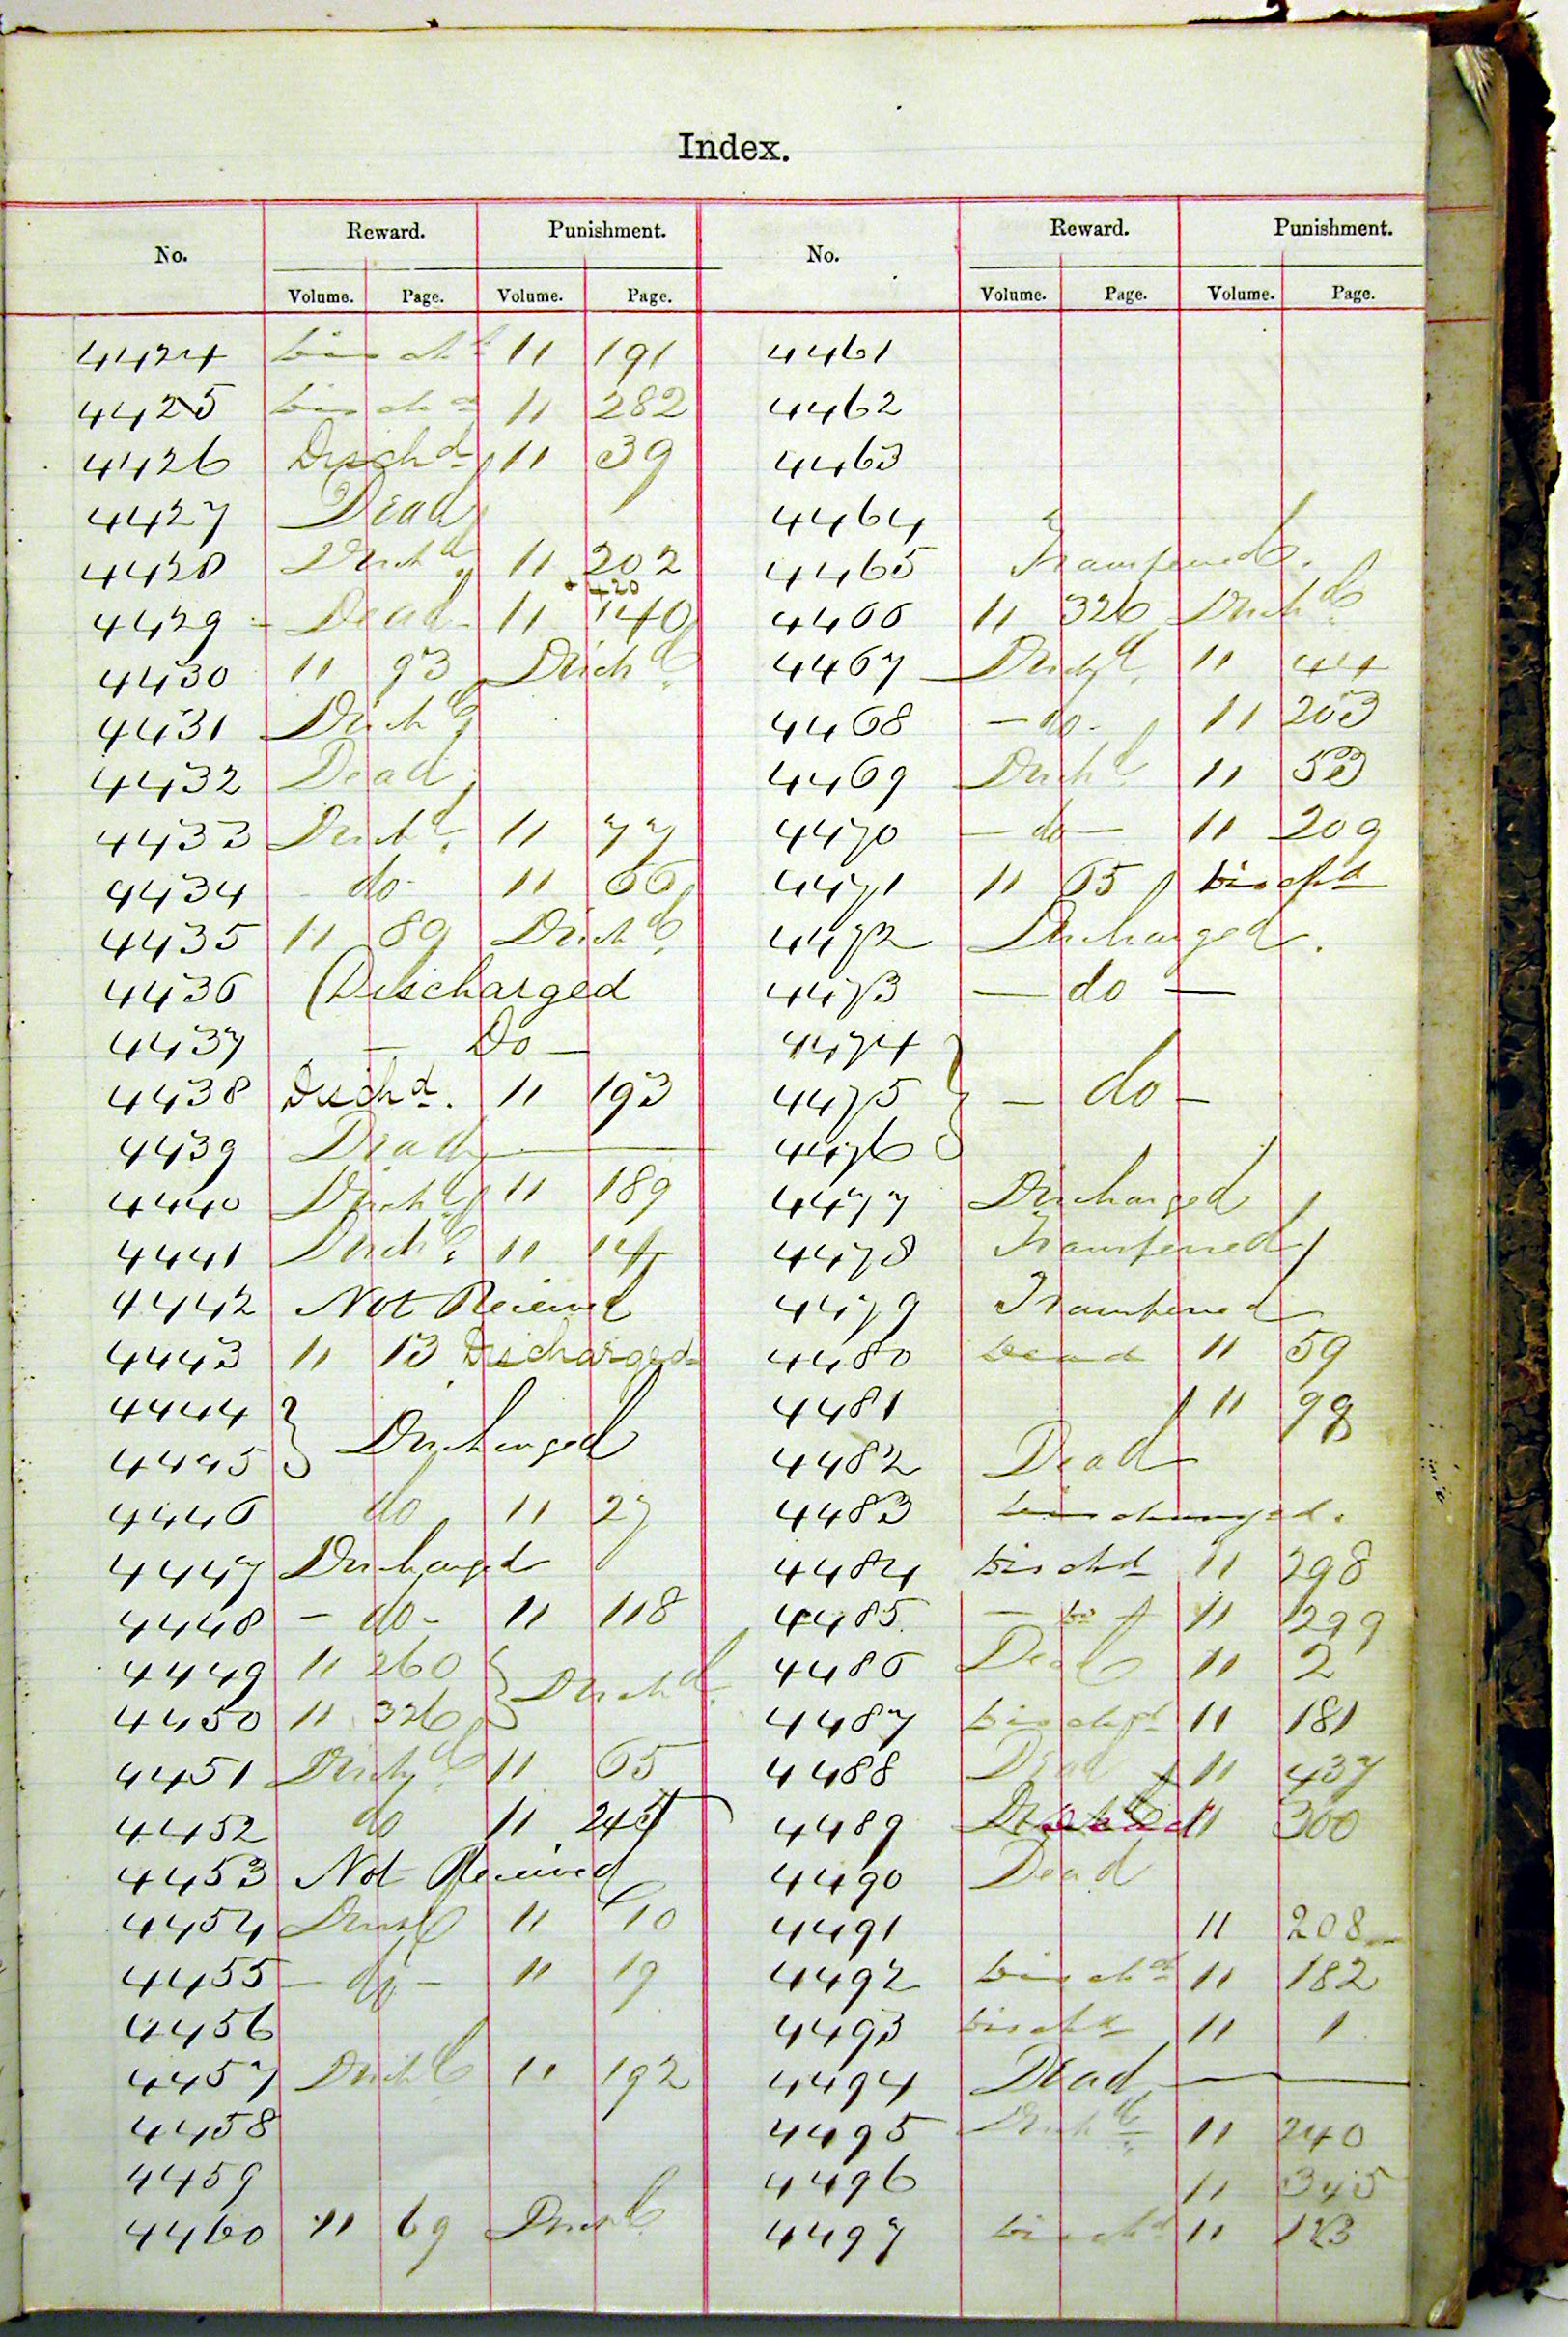 Index.
No. Reward. Punishment. No. Reward. Punishment.
Volume. Page. Volume. Page. Volume. Page. Volume. Page.
4424 Dischd 11 191 4461
4425 Dischd 11 282 4462
4426 Dischd 11 39 4463
4427 Dead 4464
4428 Dischd 11 202 4465 Transferred.
+ 420
4429 - Dead - 11 140 4466 11 326 Dischd
4430 11 93 Dischd 4467 Dischd 11 44
4431 Dischd 4468 - do - 11 203
4432 Dead 4469 Dischd 11
4433 Dischd 11 77 4470 - do - 11 209
4434 do 11 66 4471 11 65 Dischd
4435 11 89 Dischd 4472 Discharged.
4436 Discharged 4473 - do -
4437 - Do - 4474
4438 Dischd. 11 193 4475 } - do -
4439 Dead 4476
4440 Dischd 11 189 4477 Discharged
4441 Dischd 11 14 4478 Transferred
4442 Not Received 4479 Transferred
4443 11 13 Discharged 4480 Dead 11 59
4444 4481 11 98
4445 } Discharged 4482 Dead
4446 do 11 27 4483 Discharged.
4447 Discharged 4484 Dischd 11 298
4448 - do - 11 118 4485 - Do 11 299
4449 11 260 } Dischd 4486 Dead 11 2
4450 11 326 4487 Dischd 11 181
4451 Dischd 11 65 4488 Dead 11 437
4452 do 11 4489 11 300
4453 Not Received 4490 Dead
4454 Dischd 11 10 4491 11 208
4455 - do - 11 19 4492 Dischd 11 182
4456 4493 Dischd 11 1
4457 Dischd 11 192 4494 Dead
4458 4495 Dischd 11 240
4459 4496 11 345
4460 11 69 Dischd 4497 Dischd 11